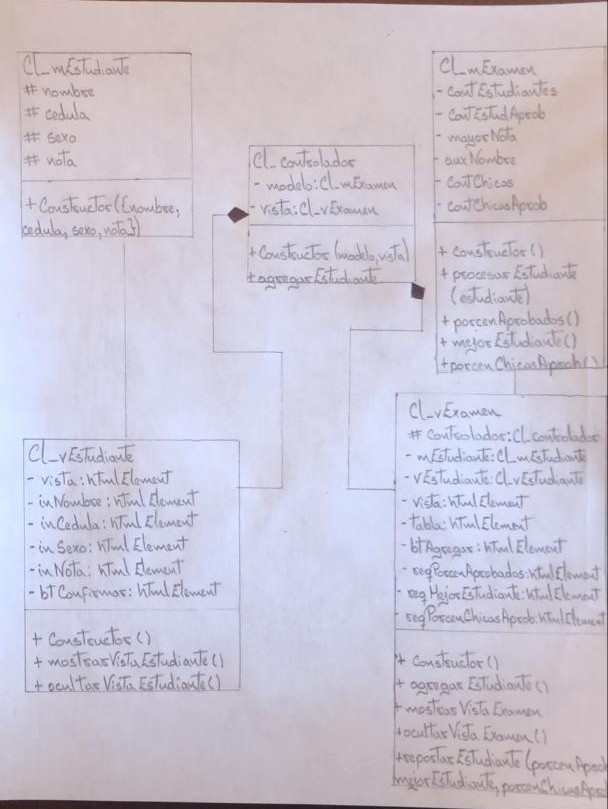 Cl_mEstudiante
# nombre
# cedula
# sexo
# nota
+ Constructor({nombre,
cedula, sexo, nota})
Cl_controlador
- modelo: Cl_mExamen
- vista: Cl_vExamen
+ Constructor (modelo, vista)
+ agregarEstudiante
Cl_mExamen
- contEstudiantes
- contEstudAprob
- mayorNota
- auxNombre
- contChicas
- contChicasAprob
+ constructor()
+ procesarEstudiante
(estudiante)
+ porcenAprobados()
+ mejorEstudiante()
+ porcenChicasAprob()
Cl_vEstudiante
- vista: htmlElement
- inNombre: htmlElement
- inCedula: htmlElement
- inSexo: htmlElement
- inNota: htmlElement
- btConfirmar: htmlElement
+ Constructor()
+ mostrarVistaEstudiante()
+ ocultarVistaEstudiante()
Cl_vExamen
# Controlador: Cl_controlador
- mEstudiante: Cl_mEstudiante
- vEstudiante: Cl_vEstudiante
- vista: htmlElement
- tabla: htmlElement
- btAgregar: htmlElement
- repPorcenAprobados: htmlElement
- repMejorEstudiante: htmlElement
- repPorcenChicasAprob: htmlElement
+ Constructor()
+ agregarEstudiante()
+ mostrarVistaExamen
+ ocultarVistaExamen()
+ reportarEstudiante (porcenAprob
mejorEstudiante, porcenChicasApro